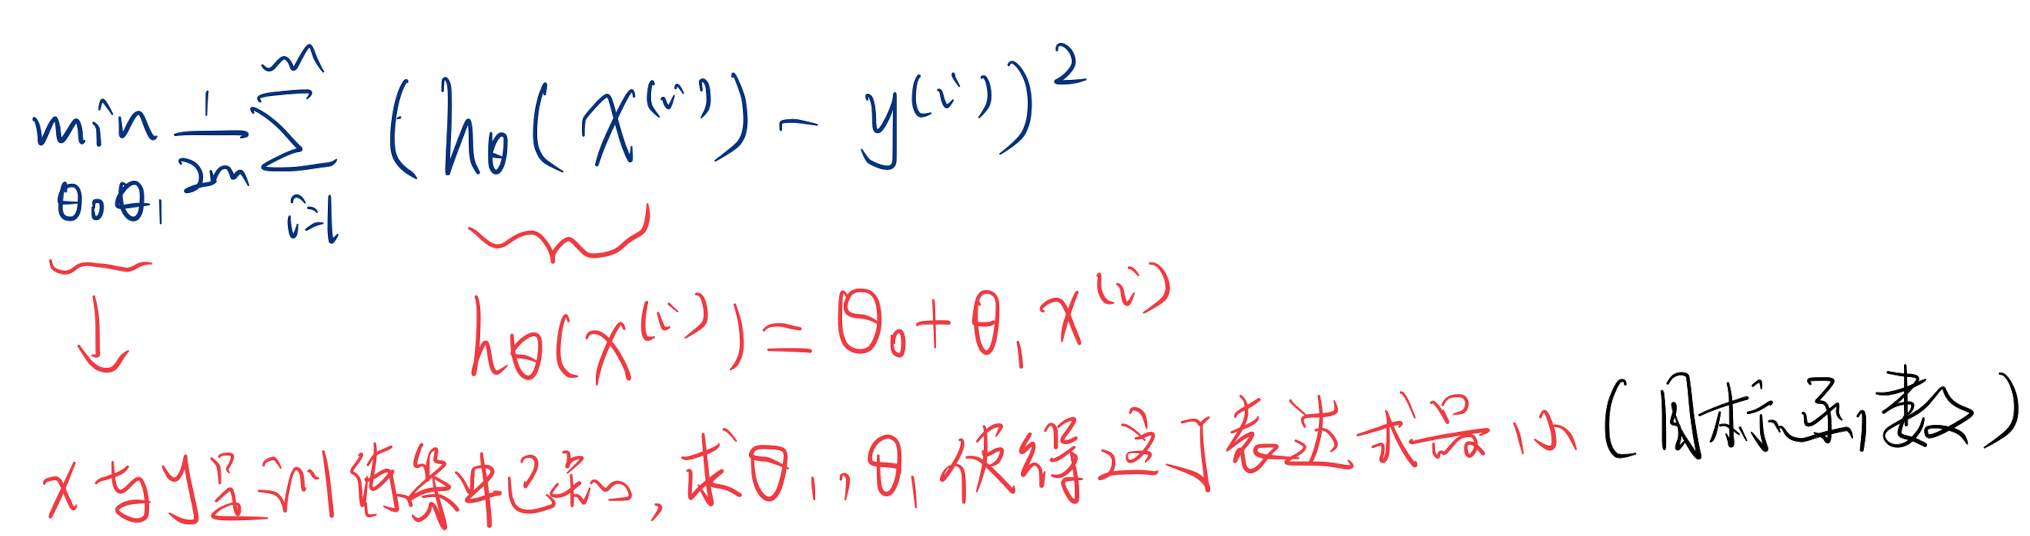 min θ₀θ₁ 1/2m ∑ᵢ₌₁ᵐ (hθ(x⁽ⁱ⁾) - y⁽ⁱ⁾)²
hθ(x⁽ⁱ⁾) = θ₀ + θ₁ x⁽ⁱ⁾
x与y是训练集中已知, 求θ₁, θ₁ 使得这个表达式最小 (目标函数)